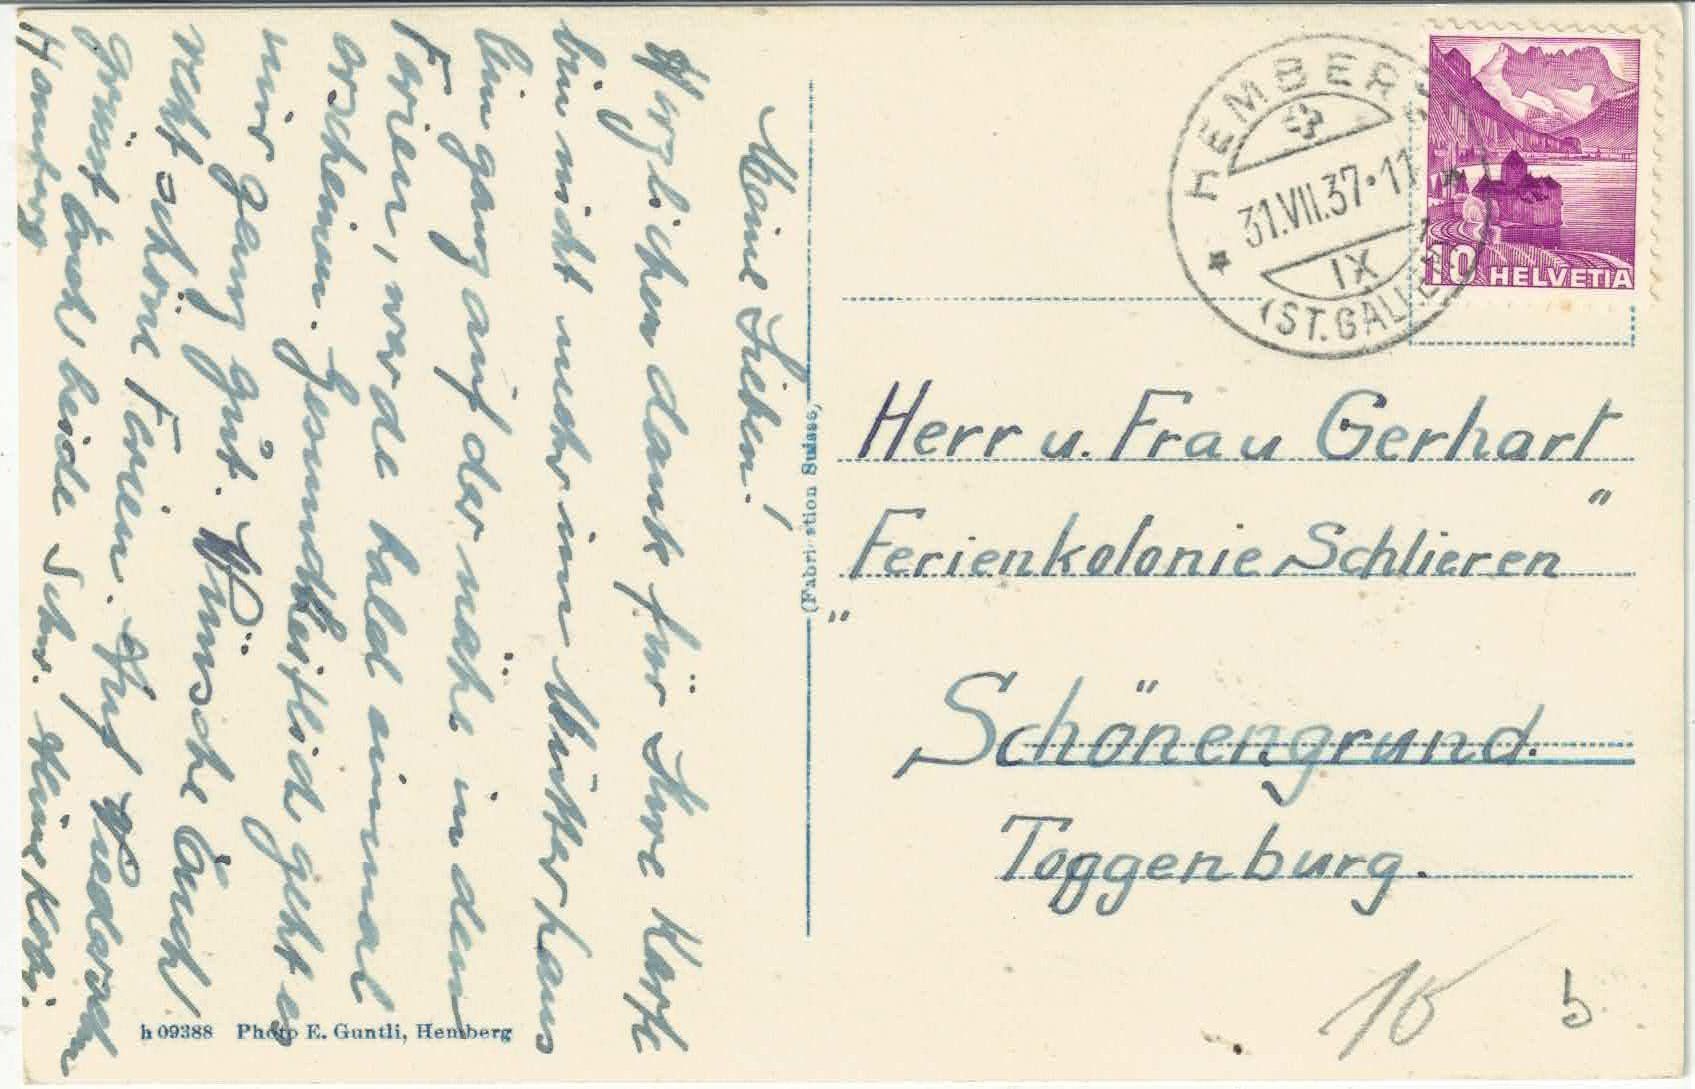 Meine Lieben!
Herzlichen dank für Ihre Karte
bin nicht mehr im Mütterhaus
bin ganz auf der nähe in den
Ferien, werde bald einmal
erscheinen. Gesundheitlich geht es
mir ganz gut. Wünsche Euch
recht schöne Ferien. Auf Wiedersehn
grüsst Euch beide Schw.
Hemberg
HEMBERG
31.VII.37·11
IX
(ST.GALLEN)
10 HELVETIA
Herr u. Frau Gerhart
"Ferienkolonie Schlieren"
Schönengrund.
Toggenburg.
(Fabrication Suisse)
h 09388 Photo E. Guntli, Hemberg
b